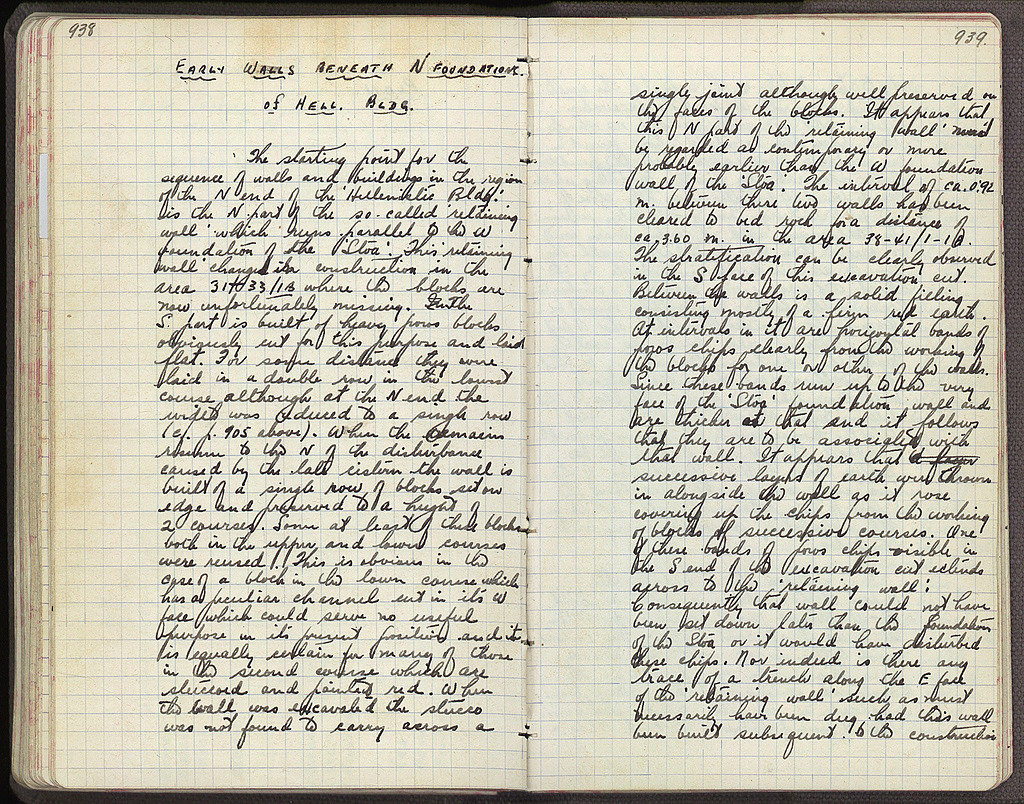 938
EARLY WALLS BENEATH N FOUNDATIONS.
of HELL. BLDG.
The starting point for the
sequence of walls and buildings in the region
of the N end of the 'Hellenistic Bldg.'
is the N part of the so-called 'retaining
wall' which runs parallel to the W
foundation of the 'Stoa'. This retaining
wall changes its construction in the
area 31-33/1B where the blocks are
now unfortunately missing. In the
S. part is built of heavy poros blocks
obviously cut for this purpose and laid
flat. For some distance they were
laid in a double row in the lowest
course although at the N end the
width was reduced to a single row
(c.f. p. 905 above). When the remains
resume to the N of the disturbance
caused by the late cistern the wall is
built of a single row of blocks set on
edge and preserved to a height of
2 courses. Some at least of these blocks
both in the upper and lower courses
were reused. This is obvious in the
case of a block in the lower course which
has a peculiar channel cut in its W
face which could serve no useful
purpose in its present position and it
is equally certain for many of those
in the second course which are
stuccoed and painted red. When
the wall was excavated the stucco
was not found to carry across a
939.
single joint although well preserved on
the faces of the blocks. It appears that
this N part of the 'retaining wall' must
be regarded as contemporary or more
probably earlier than the W foundation
wall of the 'Stoa. The interval of ca. 0.92
m. between these two walls has been
cleared to bed rock for a distance of
ca. 3.60 m. in the area 38-41/1-1B.
The stratification can be clearly observed
in the S face of this excavation cut.
Between the walls is a solid filling
consisting mostly of a firm red earth.
At intervals in it are horizontal bands of
poros chips clearly from the working of
the blocks for one or other of the walls.
Since these bands run up to the very
face of the 'Stoa' foundation wall and
are thicker at that end it follows
that they are to be associated with
that wall. It appears that
successive layers of earth were thrown
in alongside the wall as it rose
covering up the chips from the working
of blocks of successive courses. One
of these bands of poros chips visible in
the S end of the excavation cut extends
across to the 'retaining wall'.
Consequently that wall could not have
been set down later than the foundation
of the Stoa or it would have disturbed
these chips. Nor indeed is there any
trace of a trench along the E face
of the 'retaining wall' such as must
necessarily have been dug had this wall
been built subsequent to the construction